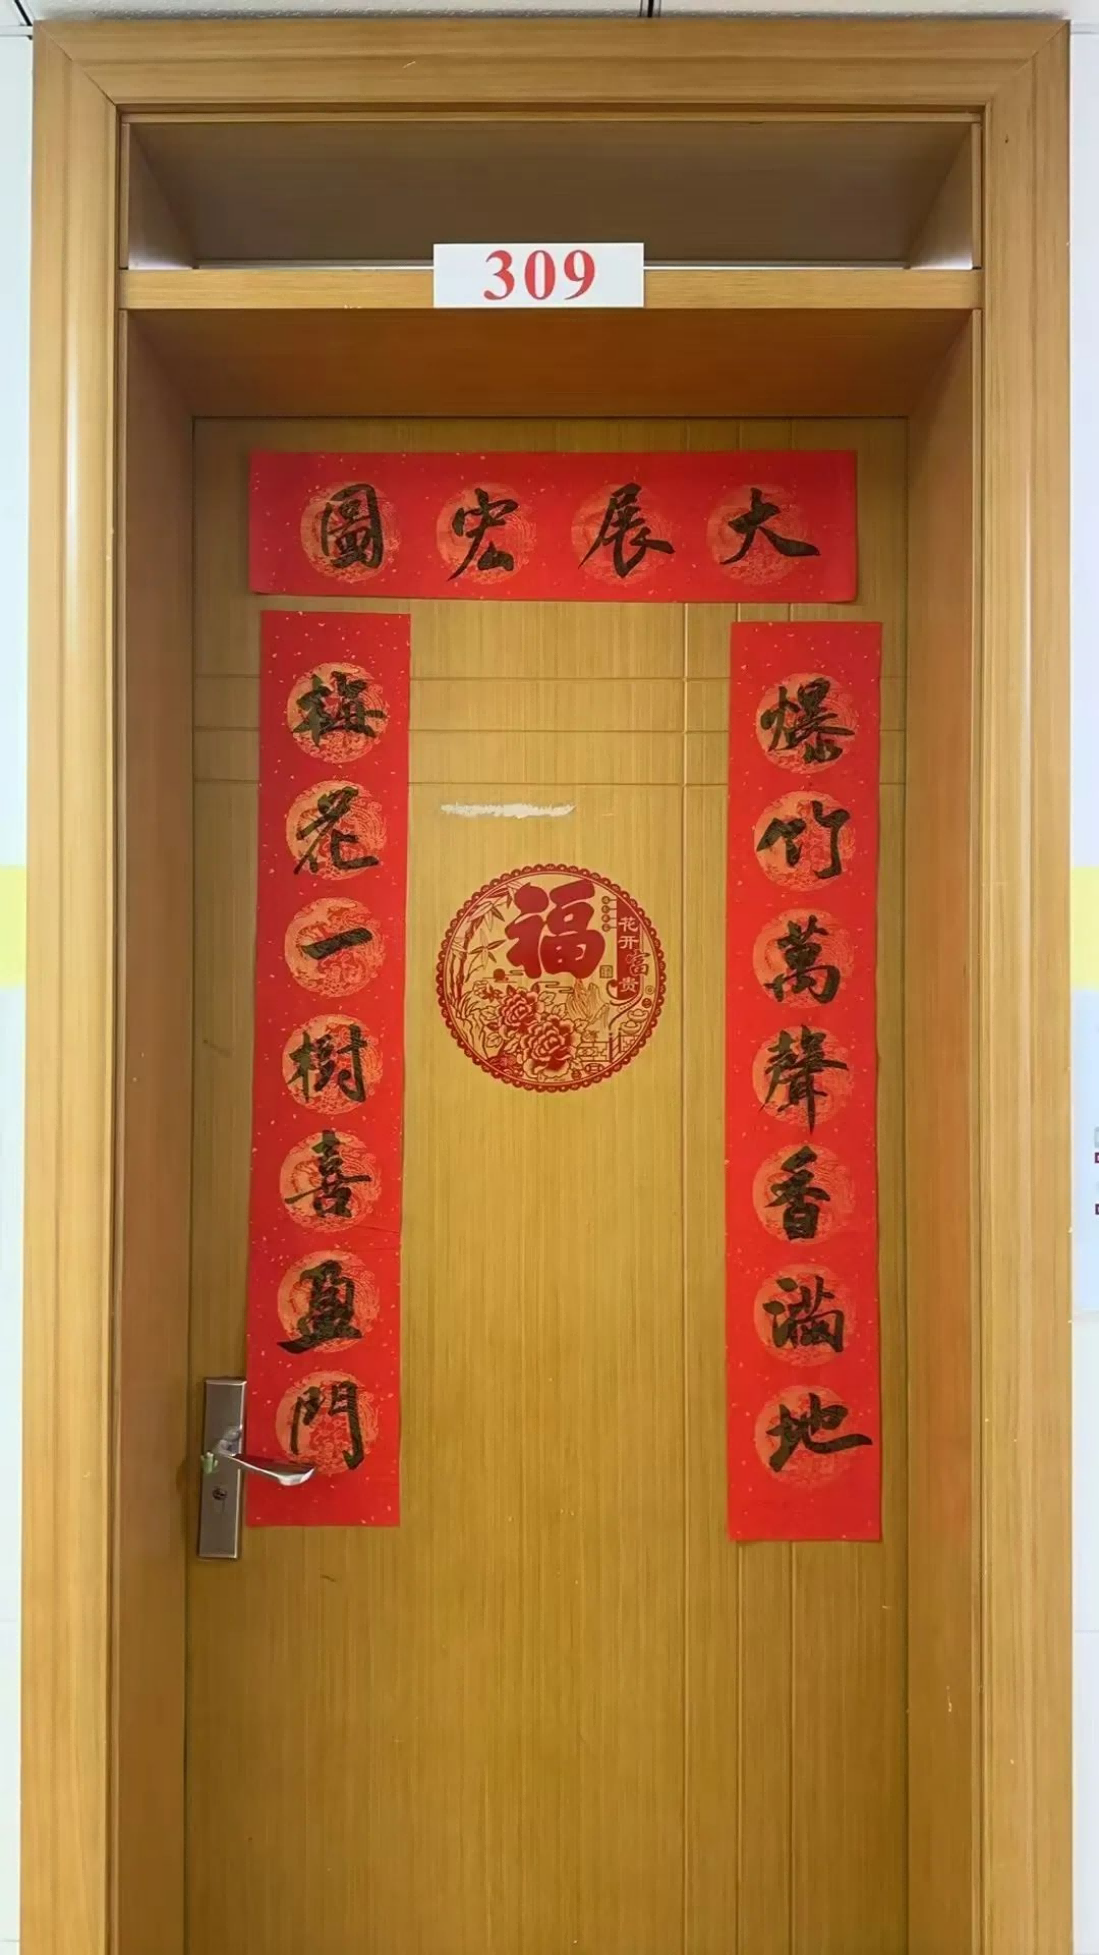 309
大展宏圖
爆竹萬聲香滿地
梅花一樹喜盈門
福
花开富贵